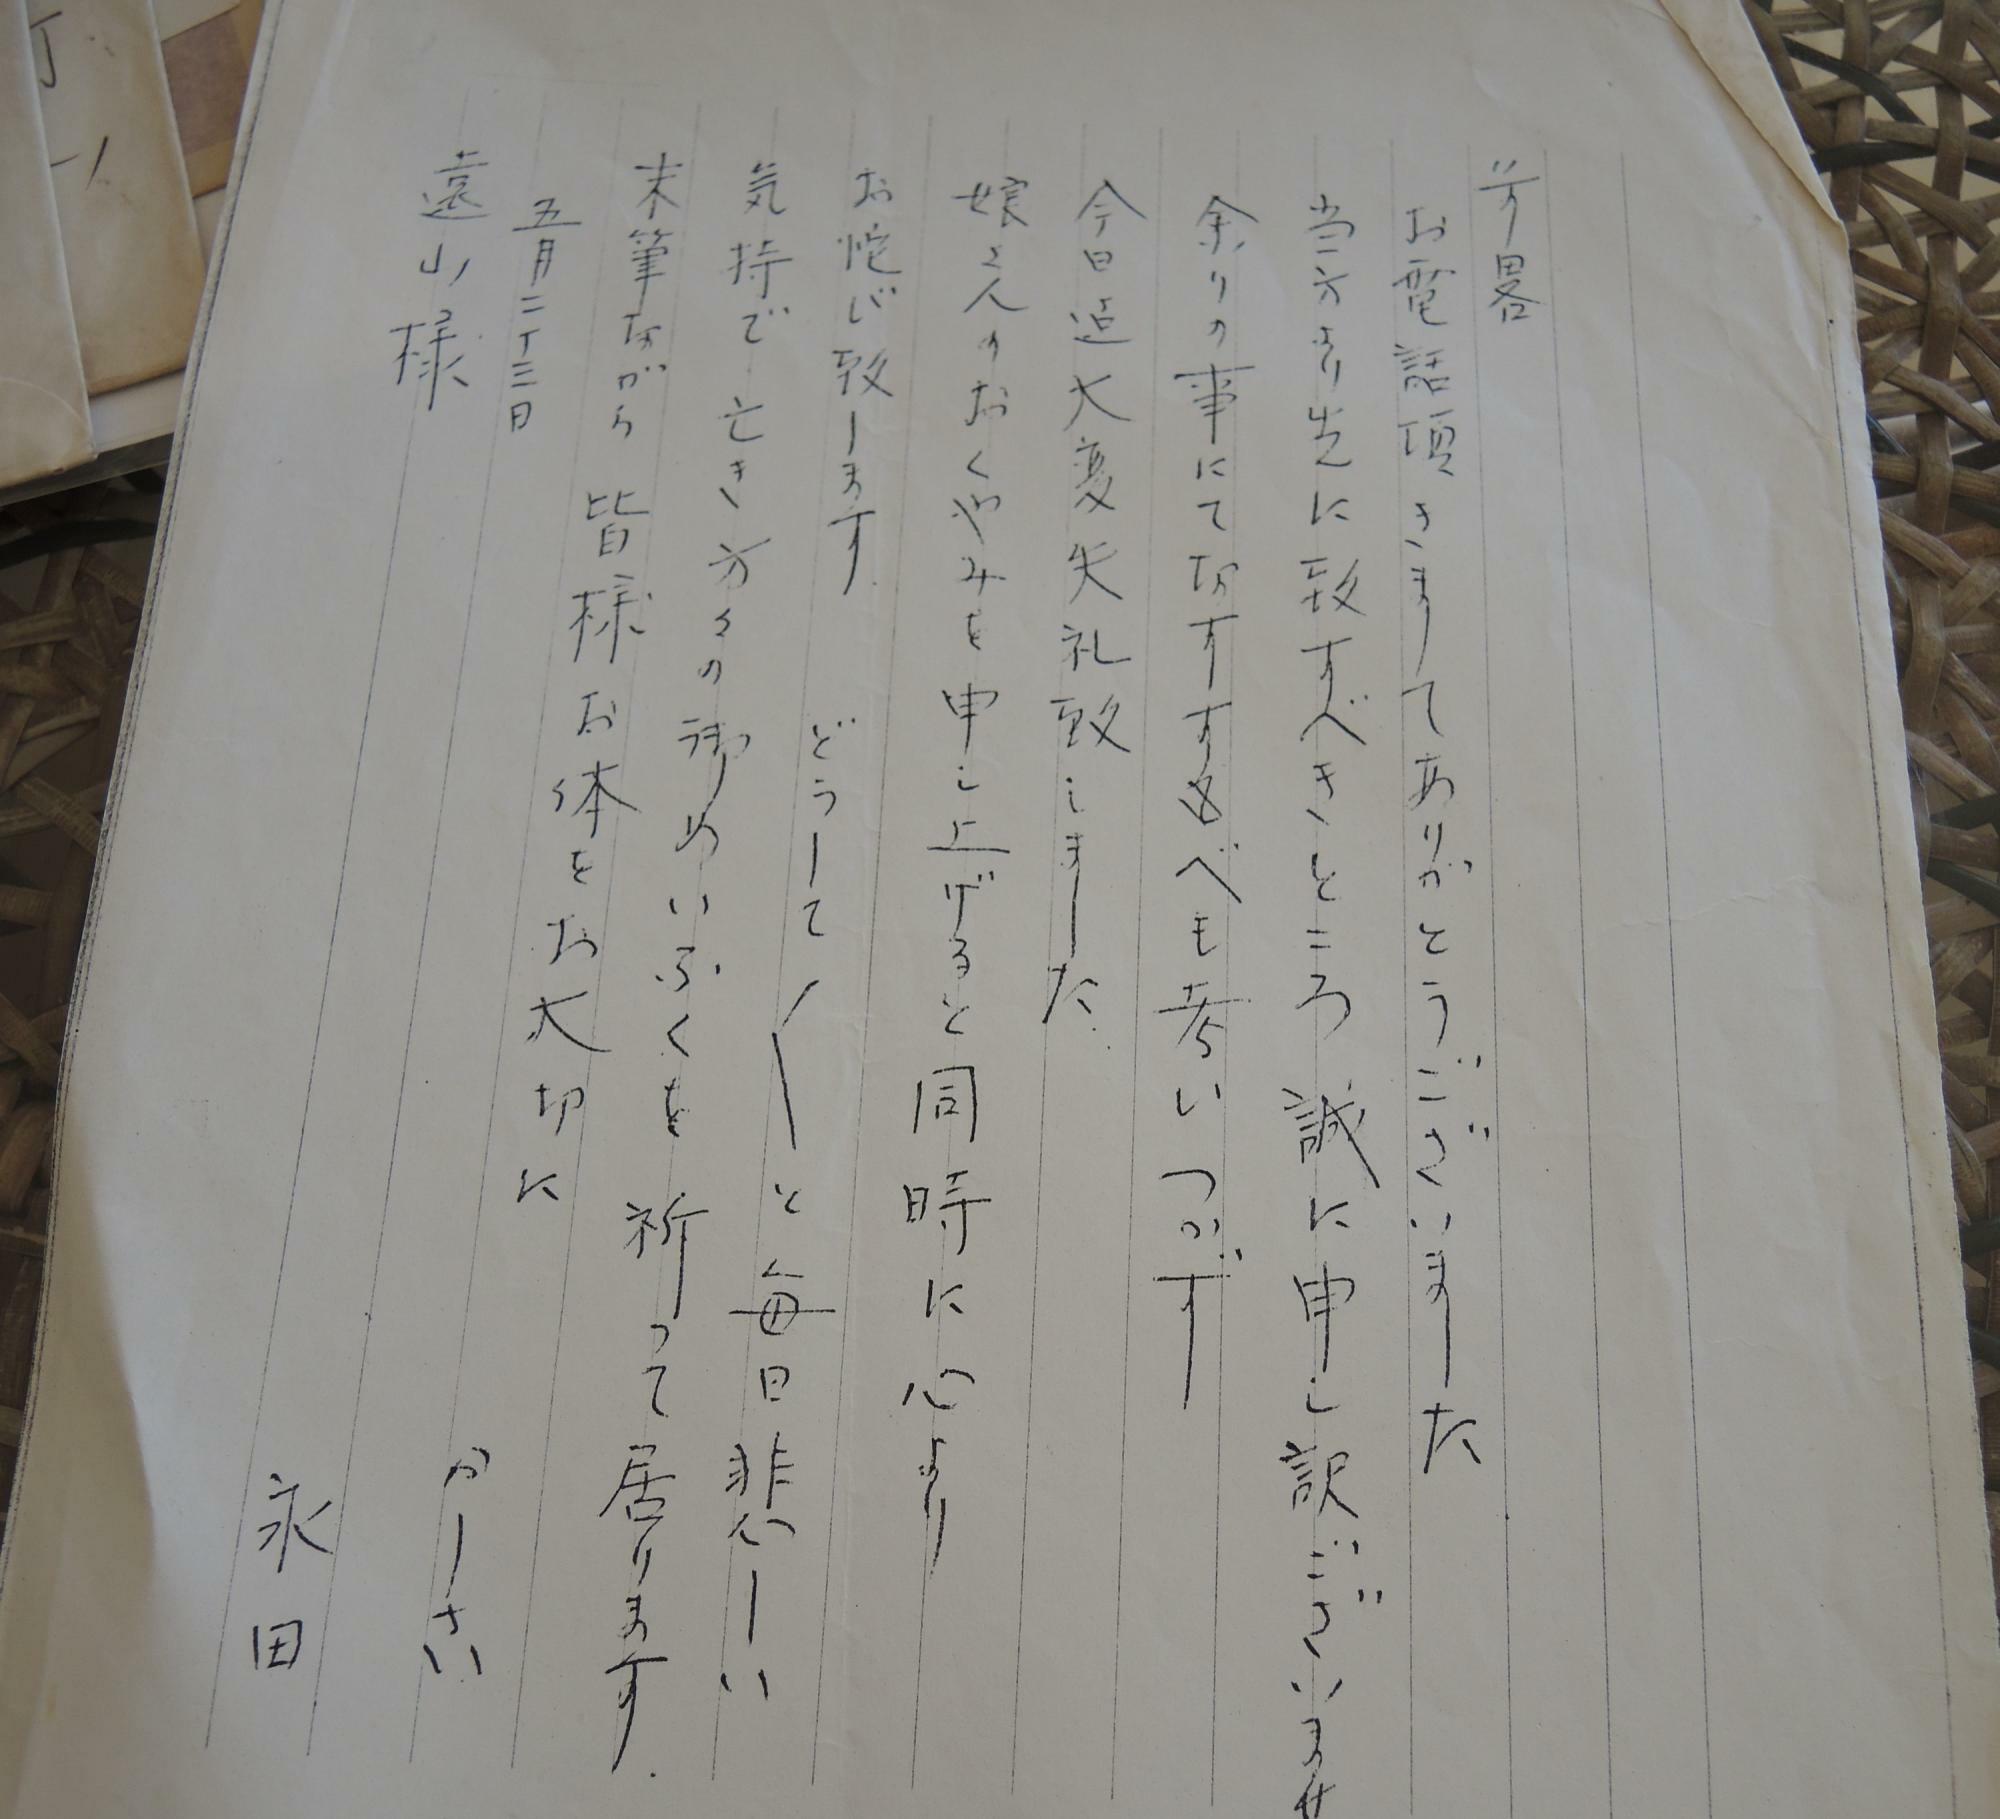 前略
お電話頂きましてありがとうございました
当方より先に致すべきところ誠に申し訳ございませ
余りの事にてなすすべも考いつかず
今日迄大変失礼致しました
娘さんのおくやみを申し上げると同時に心より
お詫び致します どうして
と毎日悲しい
気持で亡き方々の御めいふくを祈って居ります
末筆ながら皆様お体をお大切に
かしさい
五月二十三日
永田
遠山様